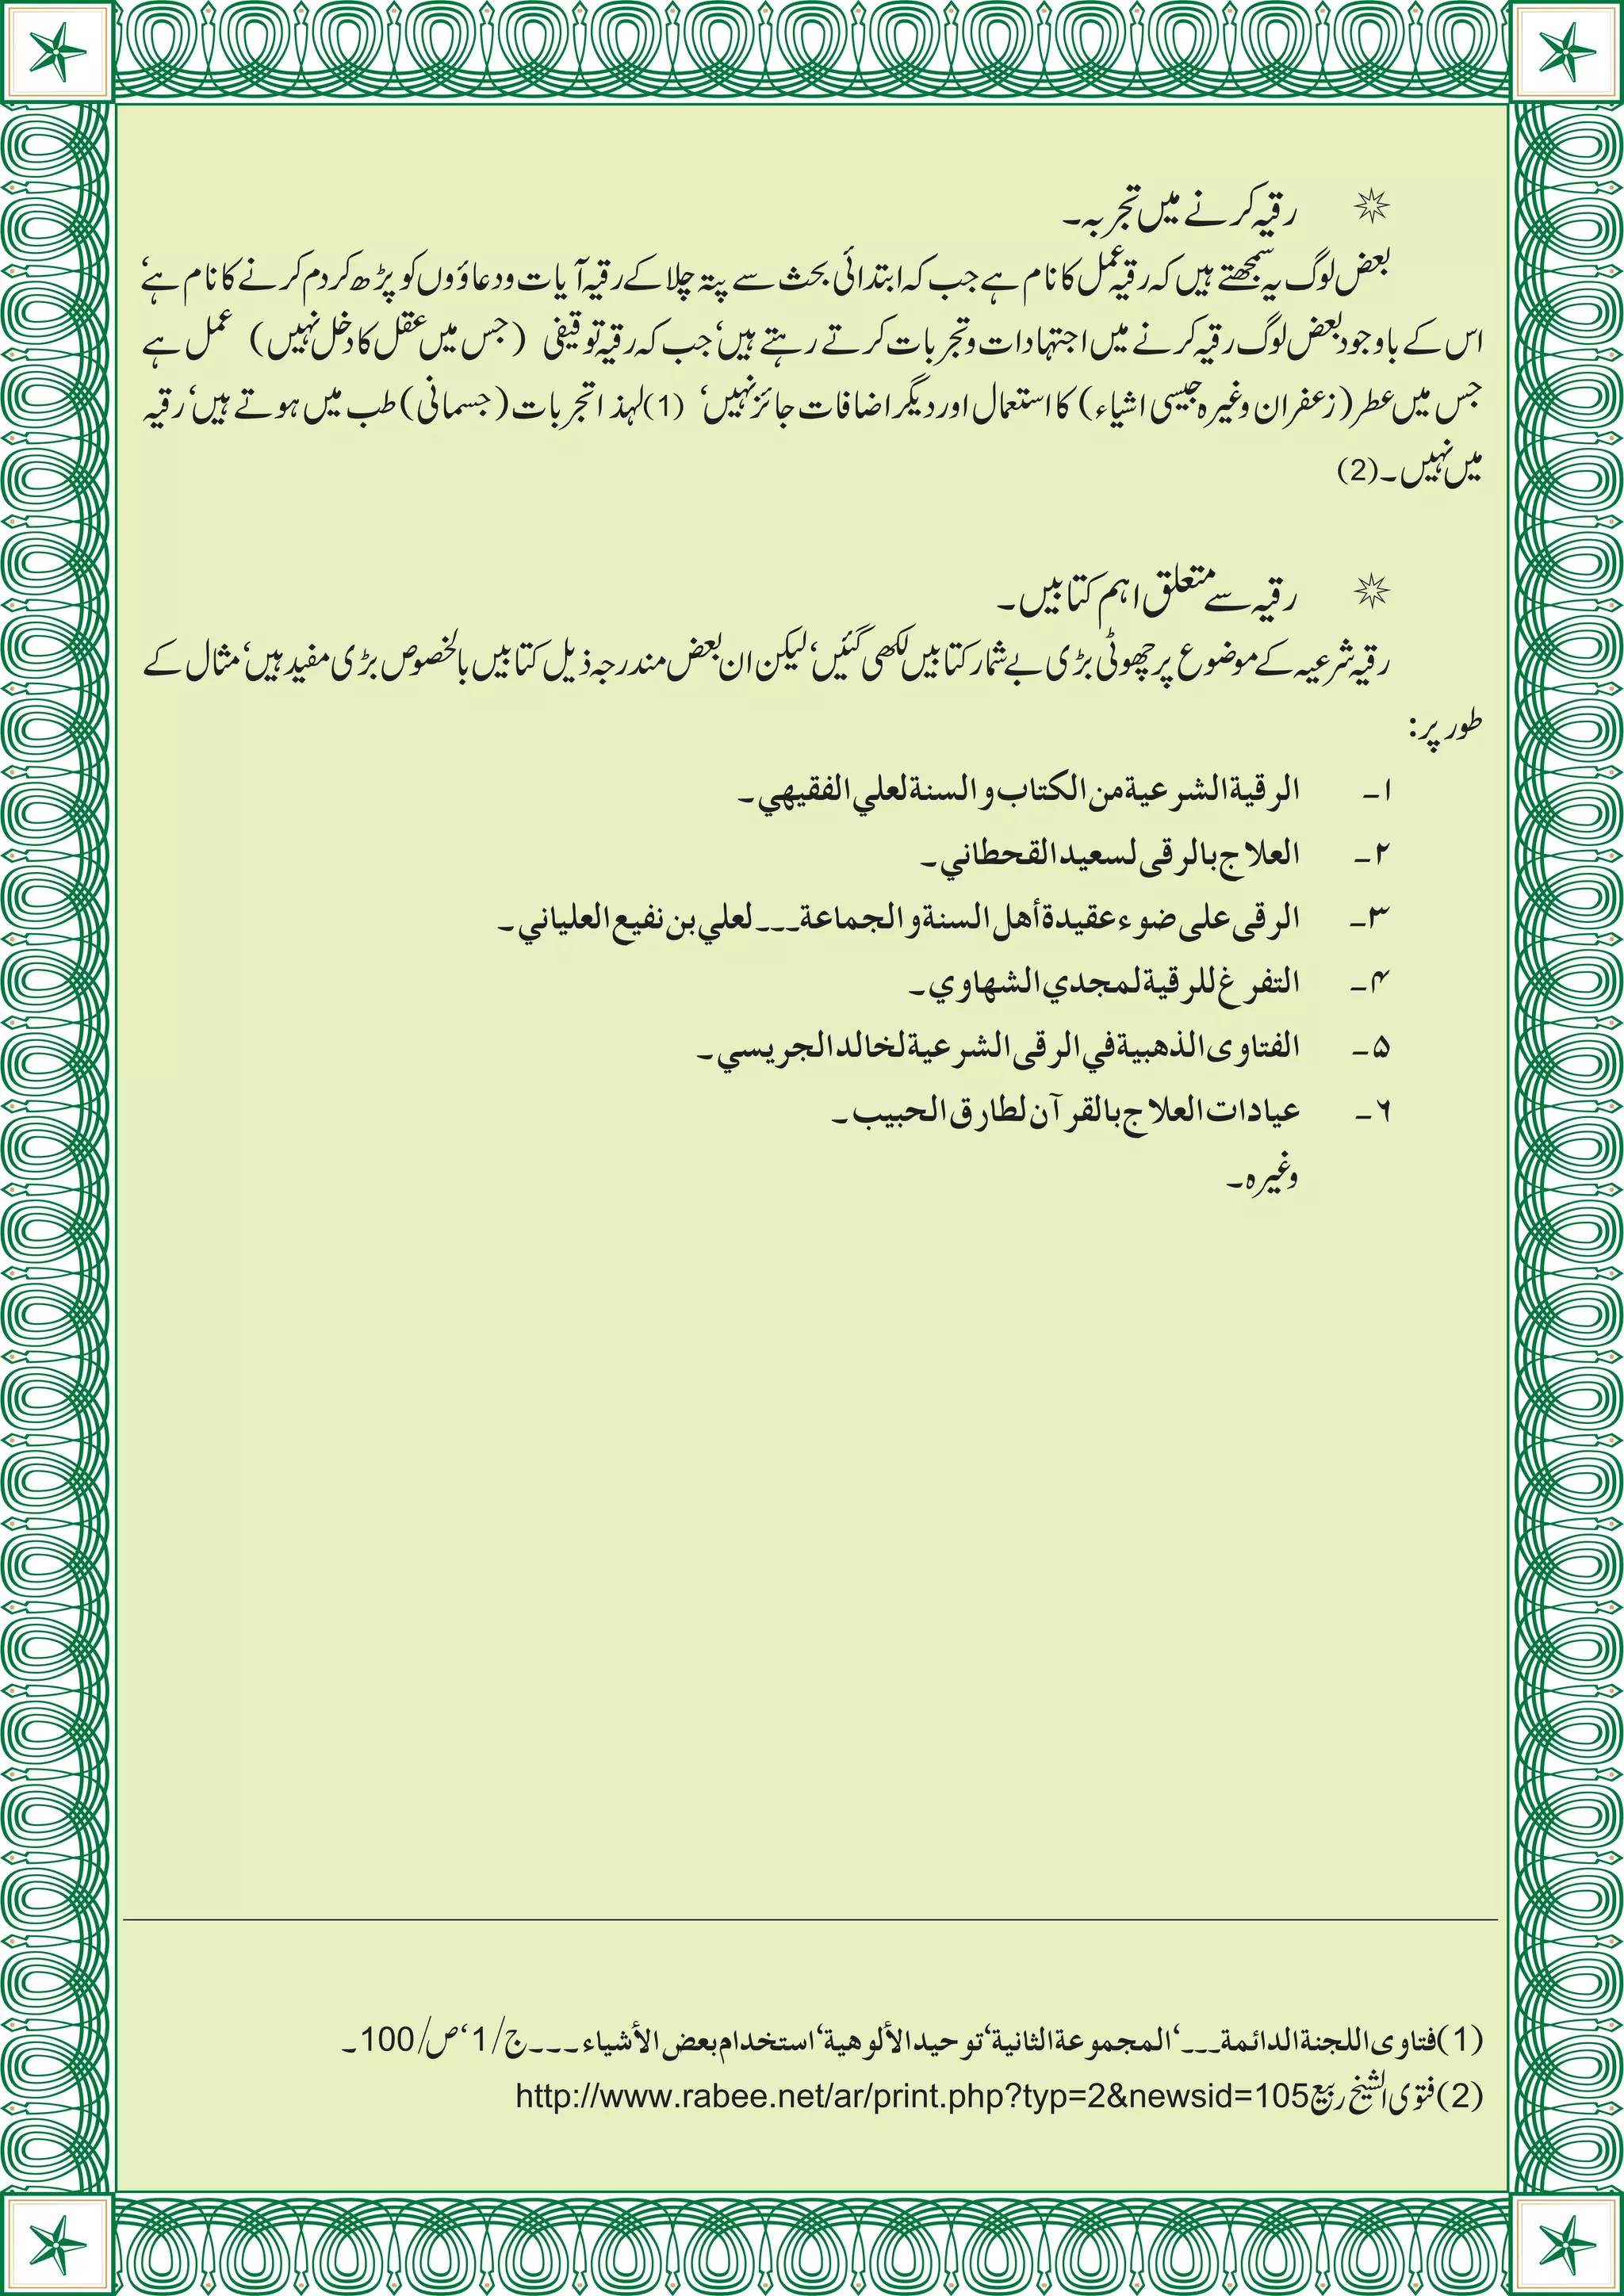 رقیہ کرنے میں تجربہ۔
بعض لوگ یہ سمجھتے ہیں کہ رقیہ عمل کا نام ہے جب کہ ابتدائی بحث سے پتہ چلا کے رقیہ آیات ودعاؤوں کو پڑھ کر دم کرنے کا نام ہے‘
اس کے باوجود بعض لوگ رقیہ کرنے میں اجتہادات وتجربات کرتے رہتے ہیں‘ جب کہ رقیہ توقیفی (جس میں عقل کا دخل نہیں) عمل ہے
جس میں عطر (زعفران وغیرہ جیسی اشیاء) کا استعمال اور دیگر اضافات جائز نہیں‘ (1) لہذا تجربات (جسمانی) طب میں ہوتے ہیں‘ رقیہ
میں نہیں۔(2)
رقیہ سے متعلق اہم کتابیں۔
رقیہ شرعیہ کے موضوع پر چھوٹی بڑی بے شمار کتابیں لکھی گئیں‘ لیکن ان بعض مندرجہ ذیل کتابیں بالخصوص بڑی مفید ہیں‘ مثال کے
طور پر:
۱۔ الرقية الشرعية من الكتاب والسنة لعلي الفقيهي۔
۲۔ العلاج بالرقى لسعيد القحطاني۔
۳۔ الرقى على ضوء عقيدة أهل السنة والجماعة۔۔۔ لعلي بن نفيع العلياني۔
۴۔ التفرغ للرقية لمجدي الشهاوي۔
۵۔ الفتاوى الذهبية في الرقى الشرعية لخالد الجريسي۔
۶۔ عيادات العلاج بالقرآن لطارق الحبيب۔
وغیرہ۔
(1) فتاوى اللجنة الدائمة۔۔۔‘ المجموعة الثانية‘ توحيد الألوهية‘ استخدام بعض الأشياء۔۔۔ ج/1‘ ص/100۔
(2) فتوی الشیخ ربیع http://www.rabee.net/ar/print.php?typ=2&newsid=105